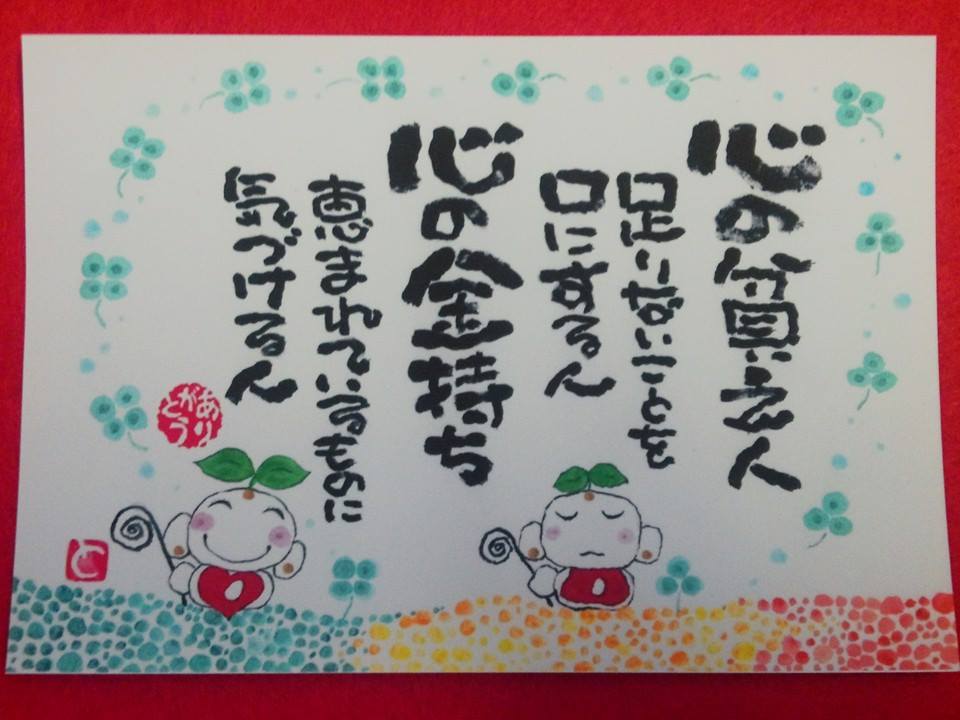 心の貧乏人
足りないことを
口にする人
心の金持ち
恵まれているものに
気づける人
ありがとう
と